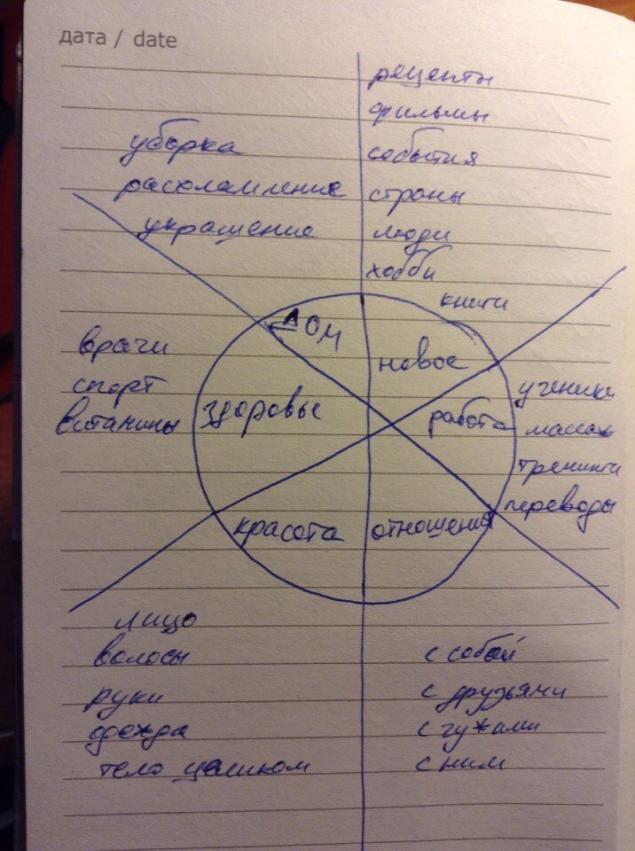 дата / date
рецепты
фильмы
события
страны
люди
хобби
книги
уборка
расхламление
украшение
дом
новое
врачи
спорт
витамины
здоровье
работа
ученики
массаж
тренинги
переводы
красота
отношения
лицо
волосы
руки
одежда
тело целиком
с собой
с друзьями
с чужами
с ним